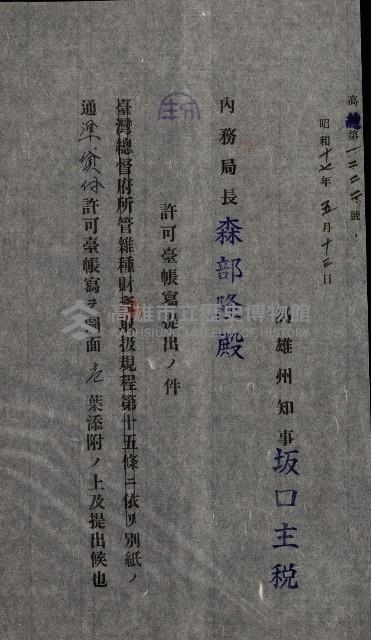 高雄第一二二二號
昭和十七年五月十三日
高雄州知事 坂口主税
內務局長 森部隆殿
許可臺帳寫提出ノ件
臺灣總督府所管雜種財產取扱規程第十五條ニ依リ別紙ノ
通許可臺帳寫ヲ圖面葉添附ノ上及提出候也
高雄市立歷史博物館
KAOHSIUNG MUSEUM OF HISTORY